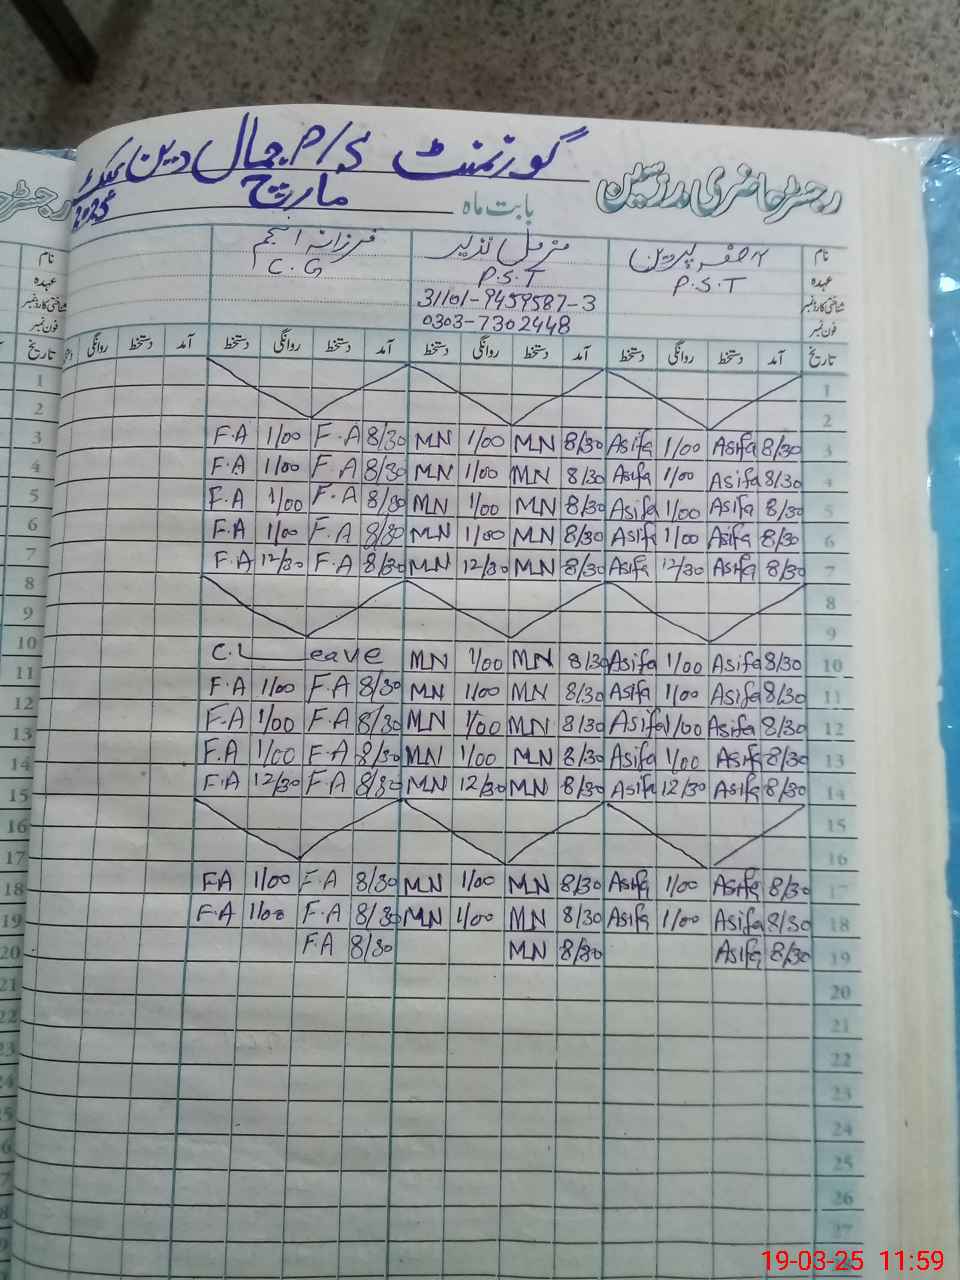 رجسٹر حاضری مدرسین گورنمنٹ P/S جمال دین
بابت ماہ مارچ 2025
نام آصفہ پروین مزمل نذیر فرزانہ انجم نام
عہدہ P.S.T P.S.T C.G عہدہ
شناختی کارڈ نمبر 31101-9459587-3 شناختی کارڈ نمبر
فون نمبر 0303-7302448 فون نمبر
تاریخ آمد دستخط روانگی دستخط آمد دستخط روانگی دستخط آمد دستخط روانگی دستخط آمد دستخط روانگی تاریخ
1 1
2 2
3 F.A 1/00 F.A 8/30 MN 1/00 MN 8/30 Asifa 1/00 Asifa 8/30 3
4 F.A 1/00 F.A 8/30 MN 1/00 MN 8/30 Asifa 1/00 Asifa 8/30 4
5 F.A 1/00 F.A 8/30 MN 1/00 MN 8/30 Asifa 1/00 Asifa 8/30 5
6 F.A 1/00 F.A 8/30 MN 1/00 MN 8/30 Asifa 1/00 Asifa 8/30 6
7 F.A 12/30 F.A 8/30 MN 12/30 MN 8/30 Asifa 12/30 Asifa 8/30 7
8 8
9 9
10 C.L eave MN 1/00 MN 8/30 Asifa 1/00 Asifa 8/30 10
11 F.A 1/00 F.A 8/30 MN 1/00 MN 8/30 Asifa 1/00 Asifa 8/30 11
12 F.A 1/00 F.A 8/30 MN 1/00 MN 8/30 Asifa 1/00 Asifa 8/30 12
13 F.A 1/00 F.A 8/30 MN 1/00 MN 8/30 Asifa 1/00 Asifa 8/30 13
14 F.A 12/30 F.A 8/30 MN 12/30 MN 8/30 Asifa 12/30 Asifa 8/30 14
15 15
16 16
17 FA 1/00 F.A 8/30 MN 1/00 MN 8/30 Asifa 1/00 Asifa 8/30 17
18 F.A 1/00 F.A 8/30 MN 1/00 MN 8/30 Asifa 1/00 Asifa 8/30 18
19 F.A 8/30 MN 8/30 Asifa 8/30 19
20 20
21 21
22 22
23 23
24 24
25
26
27
19-03-25 11:59